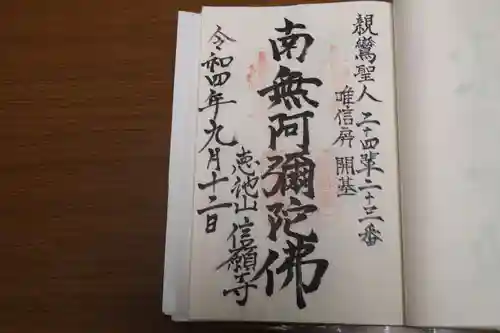 親鸞聖人二十四輩二十三番
唯信房開基
南無阿彌陀佛
恵池山信願寺
令和四年九月十二日